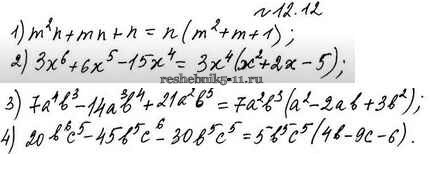 №12.12
1) m²n+mn+n = n(m²+m+1);
2) 3x⁶+6x⁵-15x⁴ = 3x⁴(x²+2x-5);
reshebnik5-11.ru
3) 7a⁴b³-14a³b⁴+21a²b⁵=7a²b³(a²-2ab+3b²);
4) 20b⁶c⁵-45b⁵c⁶-30b⁵c⁵=5b⁵c⁵(4b-9c-6).